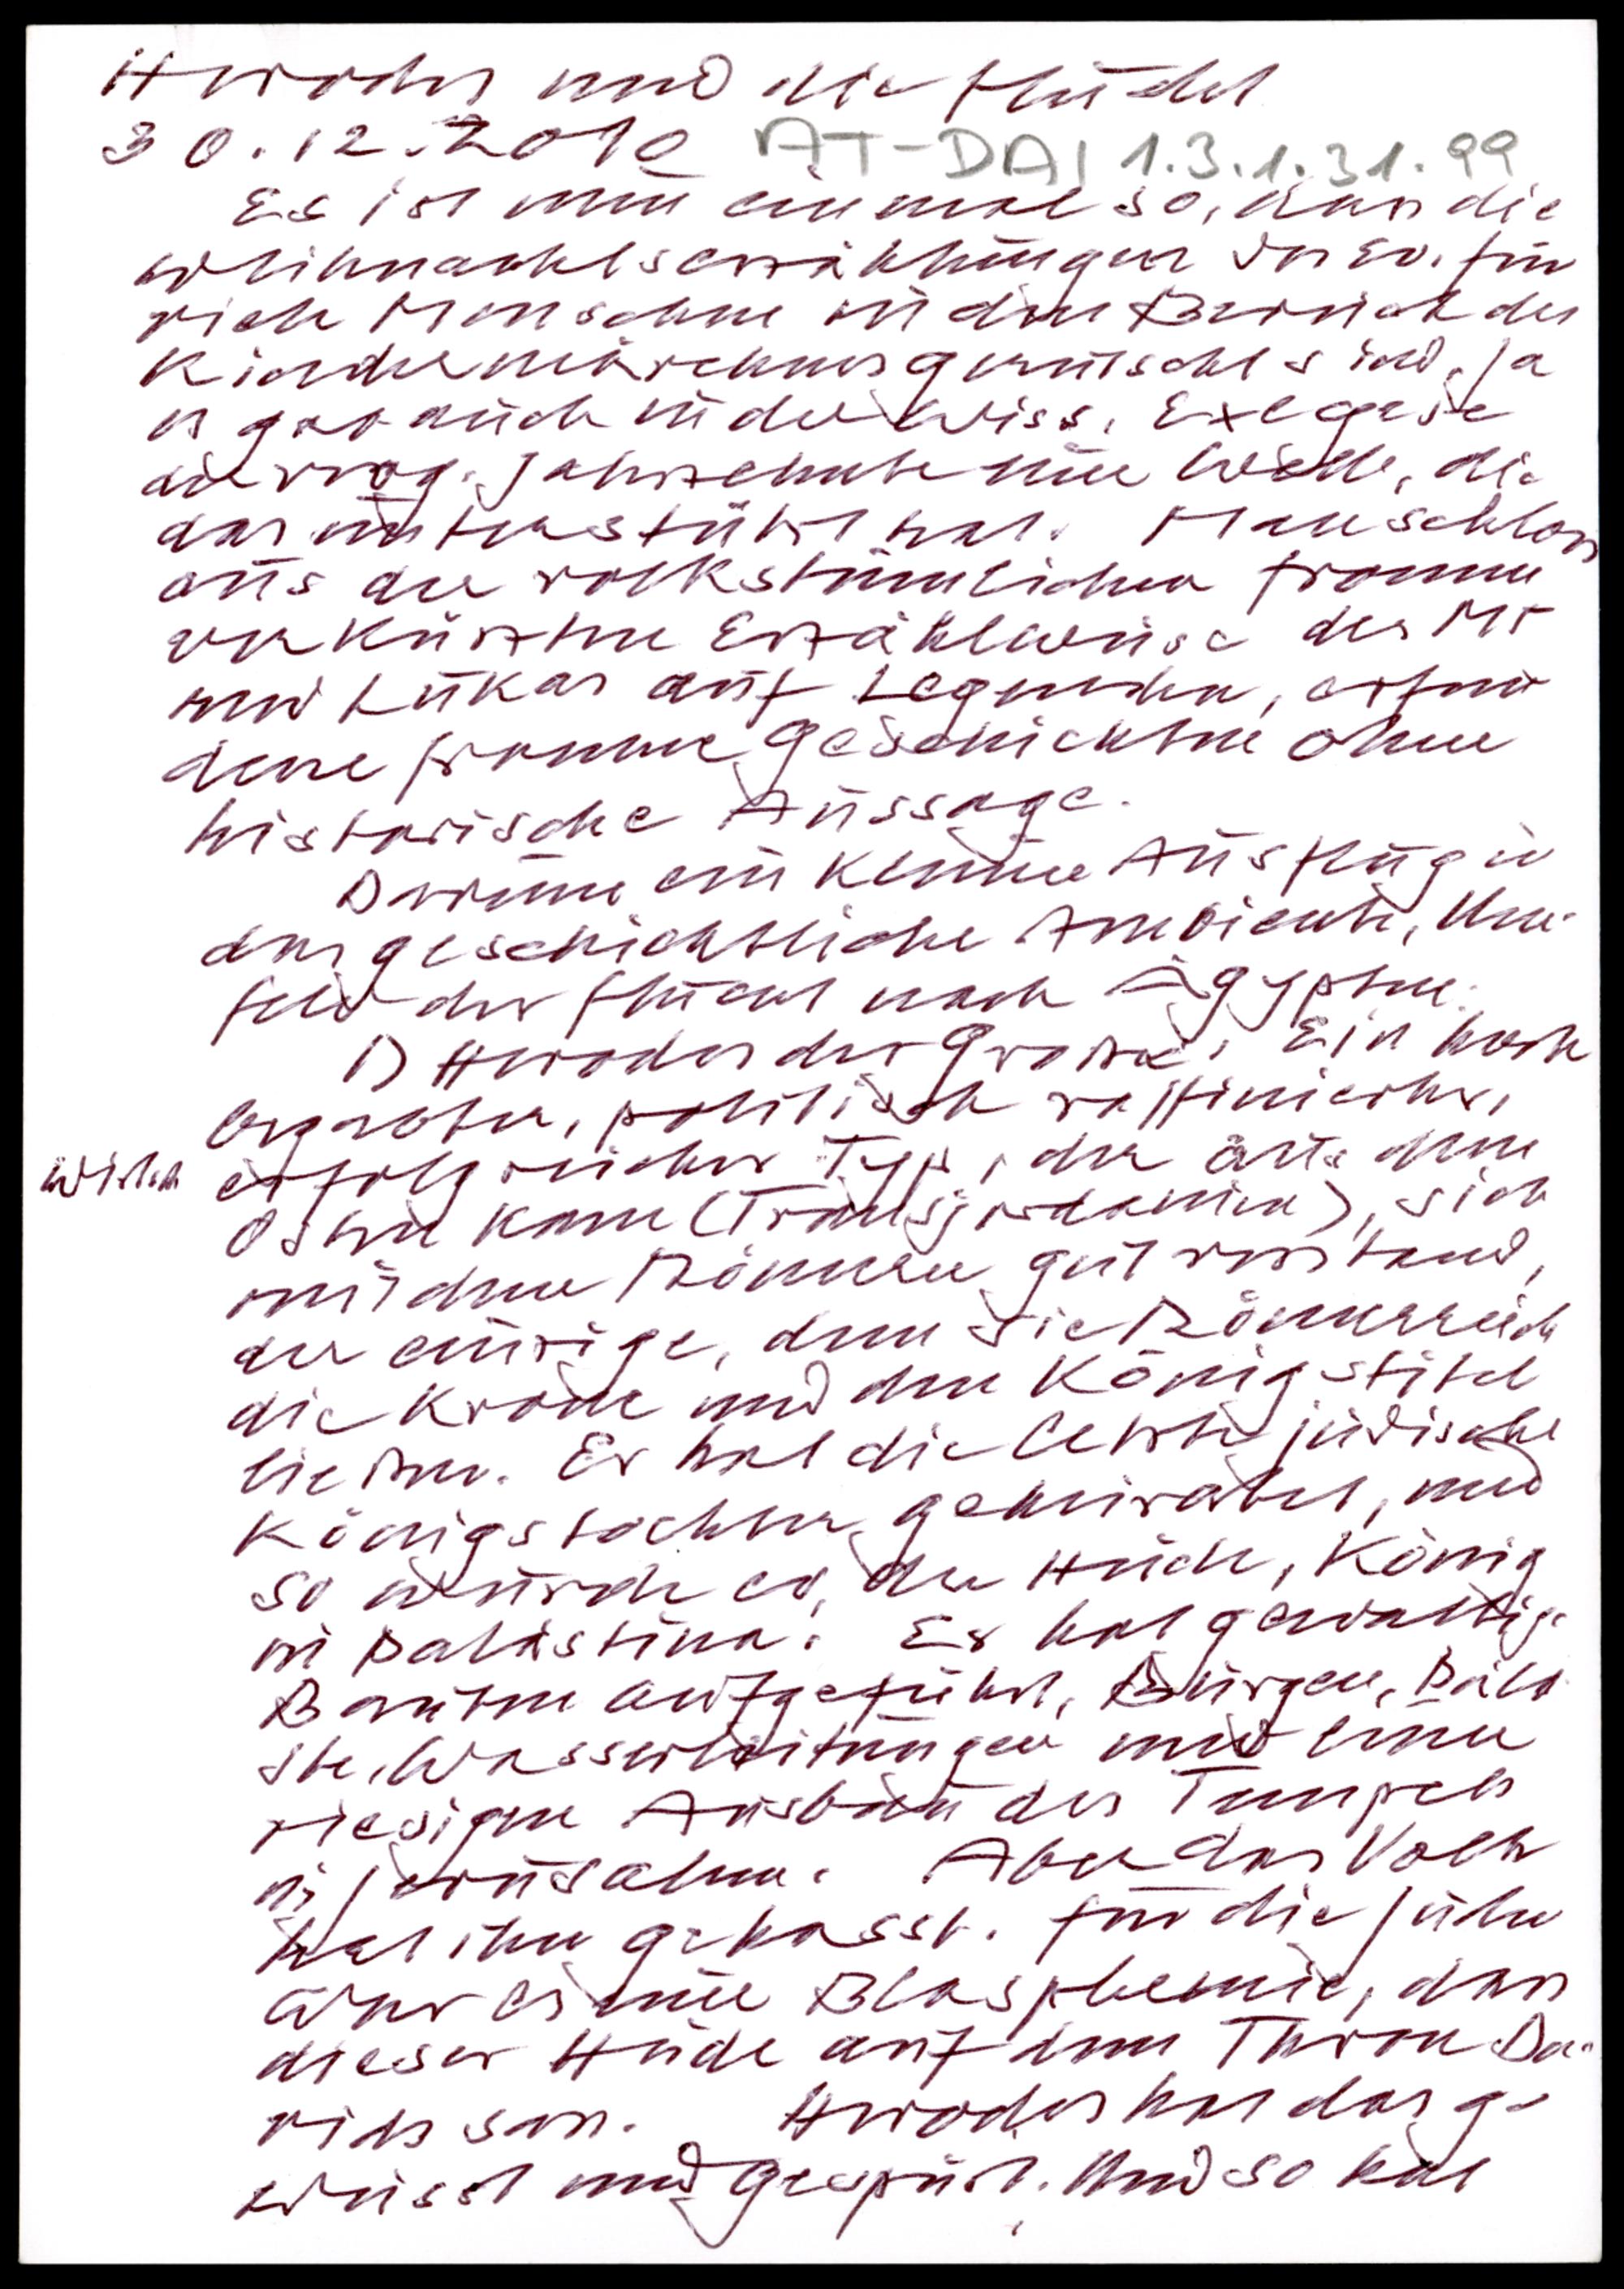 Herodes und die Flucht
30.12.2010 AT-DAI 1.3.1.31.99
Es ist nun einmal so, dass die
Weihnachtserzählungen der Ev. für
viele Menschen in den Bereich des
Kindermärchens gerutscht sind. Ja
es gab auch in der Wiss. Exegese
der verg. Jahrzehnte eine Welle, die
das unterstützt hat. Man schloss
aus der volkstümlichen fromm
verkürzten Erzählweise des Mt
und Lukas auf Legenden, erfun
dene fromme Geschichten ohne
historische Aussage.
Darum ein kleiner Ausflug in
das geschichtliche Ambiente, Um-
feld der Flucht nach Ägypten:
1) Herodes der Grosse: Ein hoch
begabter, politisch raffinierter,
erfolgreicher Typ, der aus dem
Osten kam (Transjordanien), sich
mit den Römern gut verstand,
der einzige, dem die Römer auch
die Krone und den Königstitel
liessen. Er hat die letzte jüdische
Königstochter geheiratet, und
so wurde er, der Heide, König
in Palästina. Er hat gewaltige
Bauten aufgeführt, Burgen, Pälä
ste, Wasserleitungen und einen
riesigen Ausbau des Tempels
in Jerusalem. Aber das Volk
hat ihn gehasst. Für die Juden
war es eine Blasphemie, dass
dieser Heide auf dem Thron Da-
vids sass. Herodes hat das ge-
wusst und gespürt. Und so hat